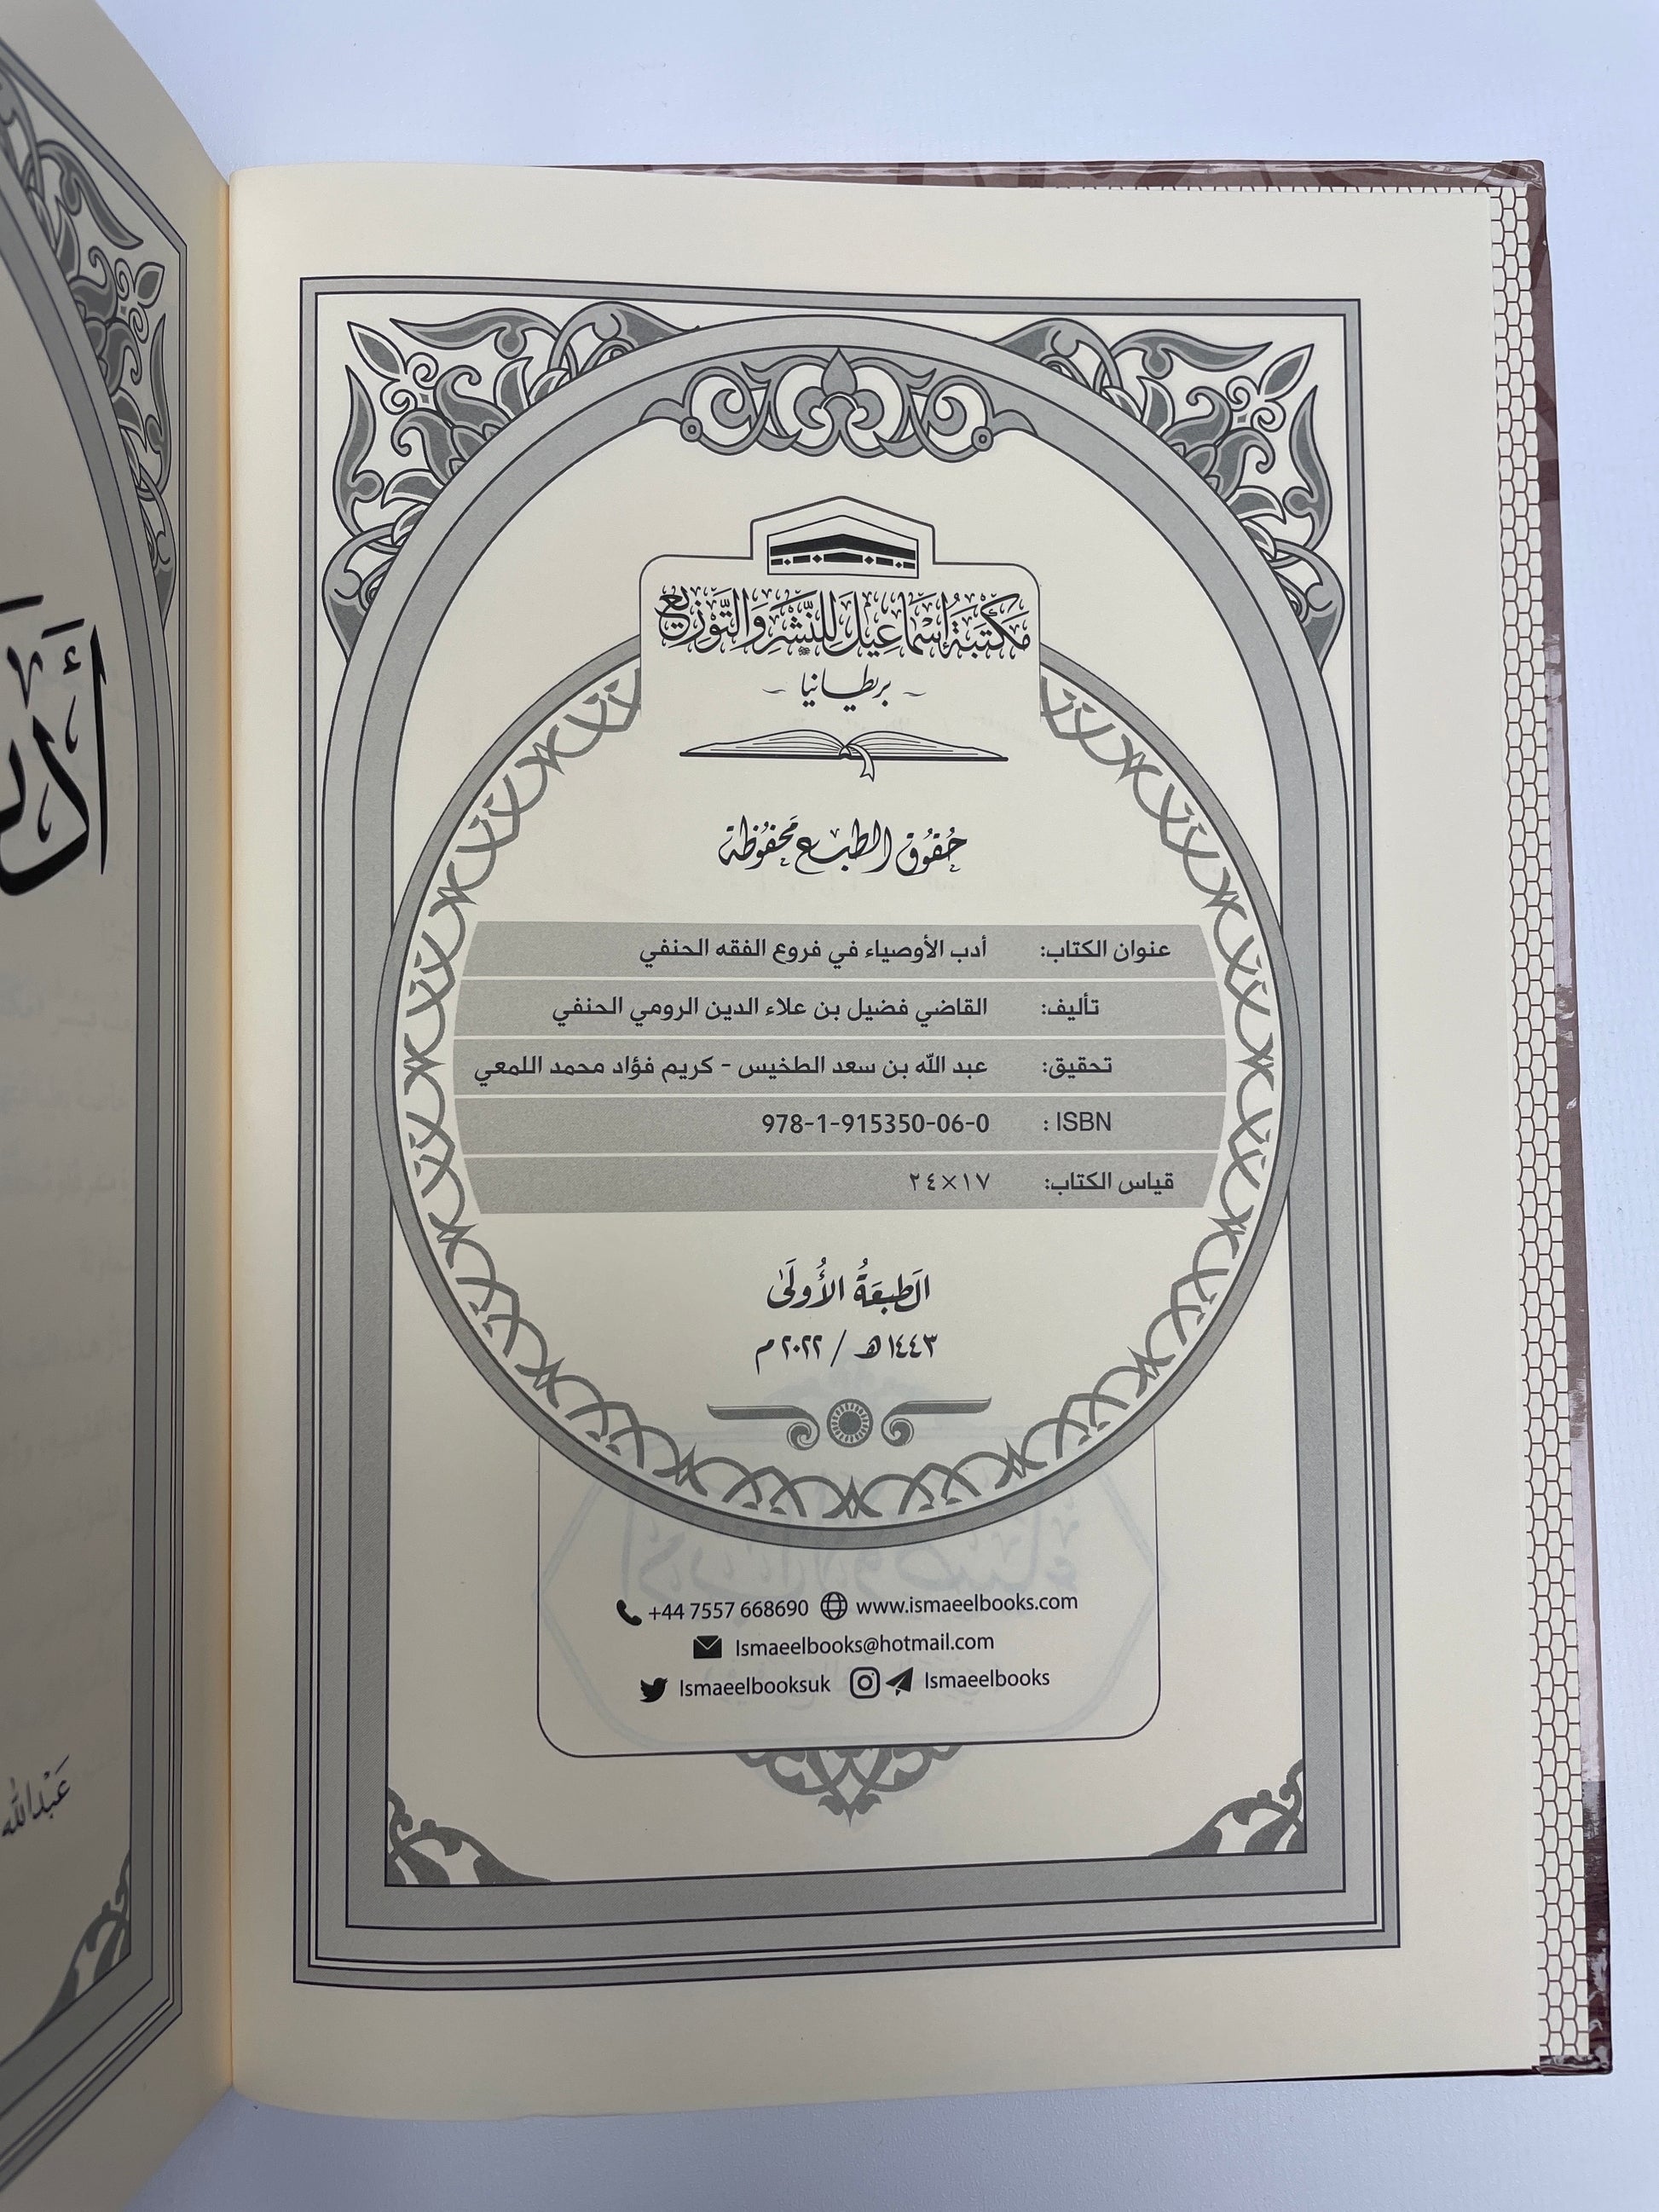 مَكْتَبَةُ إِسْمَاعِيل لِلنَّشْرِ وَالتَّوْزِيع
- بريطانيا -
حُقُوق الطبع مَحفُوظة
عنوان الكتاب: أدب الأوصياء في فروع الفقه الحنفي
تأليف: القاضي فضيل بن علاء الدين الرومي الحنفي
تحقيق: عبد الله بن سعد الطخيس - كريم فؤاد محمد اللمعي
ISBN : 978-1-915350-06-0
قياس الكتاب: ١٧×٢٤
الَطبعَةُ الأُولَىٰ
١٤٤٣هـ / ٢٠٢٢م
+44 7557 668690 www.ismaeelbooks.com
Ismaeelbooks@hotmail.com
Ismaeelbooksuk Ismaeelbooks
عَبْدالله